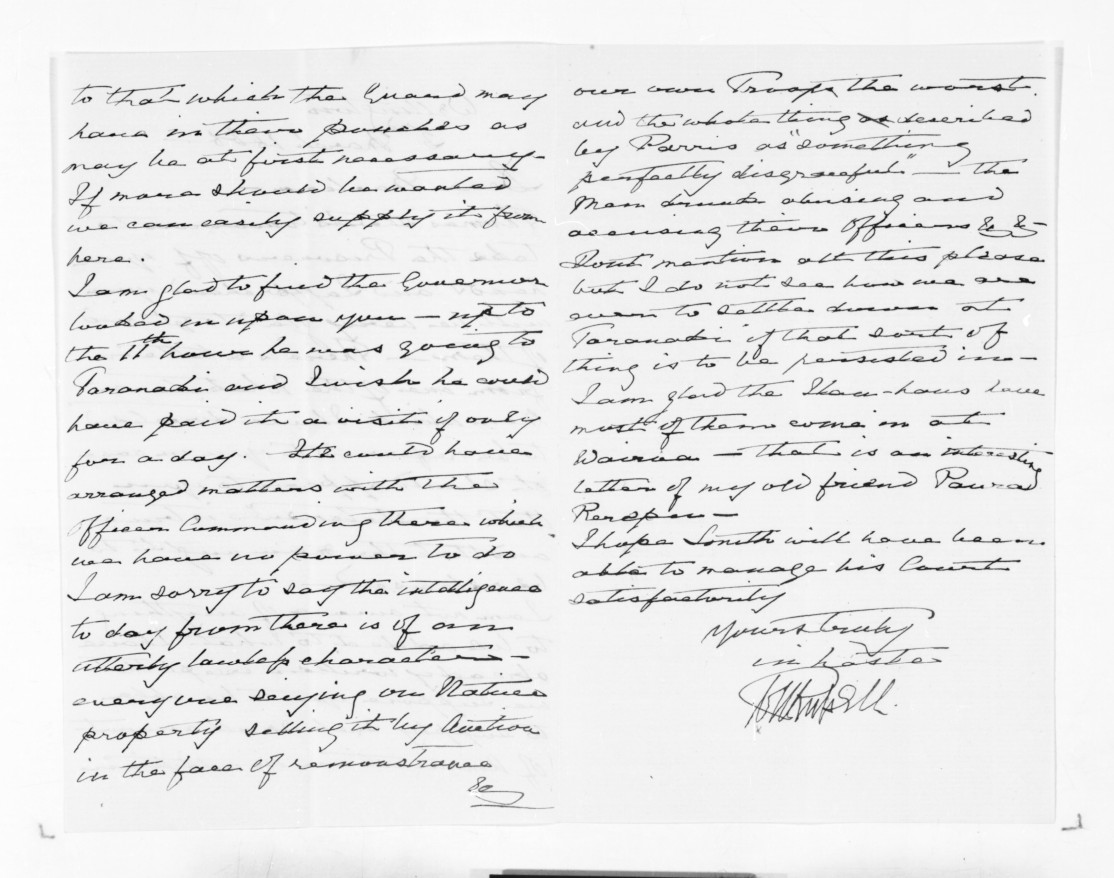 to that which the Guard may
have in their pouches as
may be at first necessary–
If more should be wanted
we can easily supply it from
here.
I am glad to find the Governor
looked in upon you – up to
the 11th hour he was going to
Taranaki and I wish he could
have paid it a visit if only
for a day. He could have
arranged matters with the
Officer Commanding there which
we have no power to do
I am sorry to say the intelligence
to day from there is of an
utterly lawless character –
everyone seizing on Native
property selling it by Auction
in the face of remonstrance
&c
our own Troops the worst
and the whole thing described
by Parris as "something
perfectly disgraceful" – the
Men drunk abusing and
accusing their Officers &c &c
Dont mention all this please
but I do not see how we are
ever to settle down at
Taranaki if that sort of
thing is to be persisted in –
I am glad the Hau-haus have
most of them come in at
Wairoa – that is an interesting
letter of my old friend

I hope Smith will have been
able to manage his Court
satisfactorily
Yours truly
in haste